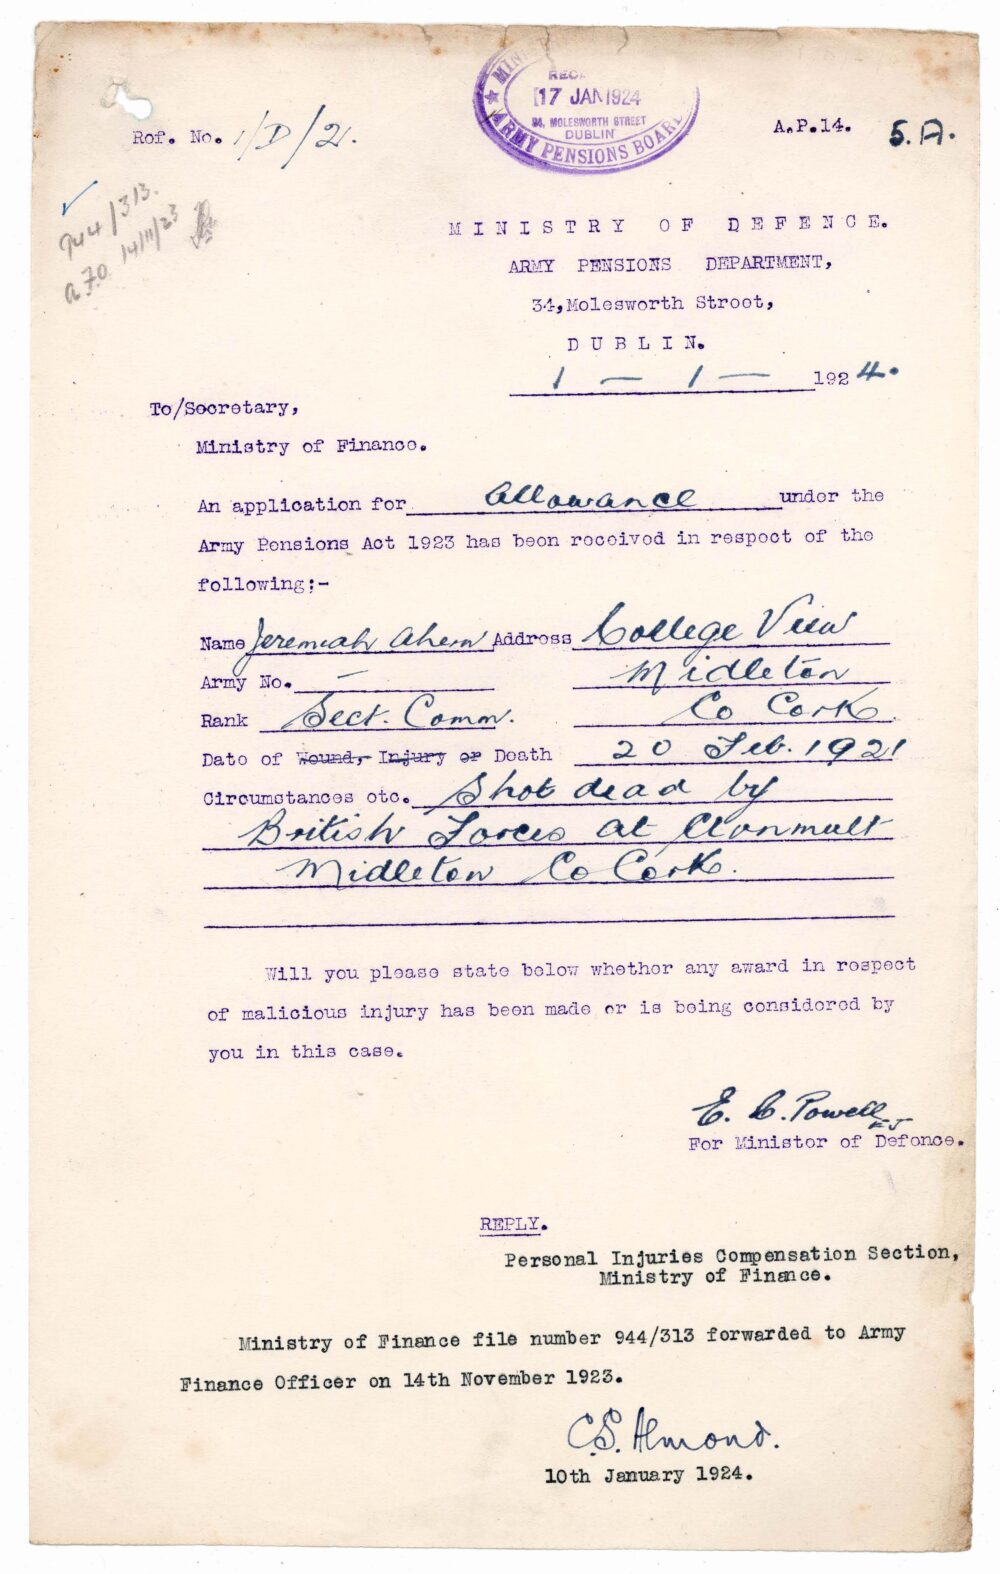 MINI
RECD.
17 JAN 1924
34, MOLESWORTH STREET
DUBLIN
★ ARMY PENSIONS BOARD
Ref. No. 1/D/21.
A.P.14. 5.A.
944/313.
a.F.O 14/11/23
MINISTRY OF DEFENCE.
ARMY PENSIONS DEPARTMENT,
34, Molesworth Street,
DUBLIN.
1 — 1 — 1924.
To/Secretary,
Ministry of Finance.
An application for Allowance under the
Army Pensions Act 1923 has been received in respect of the
following;-
Name Jeremiah Ahern Address College View
Army No. — Midleton
Rank Sect. Comm. Co Cork
Date of Wound, Injury or Death 20 Feb. 1921
Circumstances etc. Shot dead by
British Forces at Clonmult
Midleton Co Cork.
Will you please state below whether any award in respect
of malicious injury has been made or is being considered by
you in this case.
E. C. Powell
For Minister of Defence.
REPLY.
Personal Injuries Compensation Section,
Ministry of Finance.
Ministry of Finance file number 944/313 forwarded to Army
Finance Officer on 14th November 1923.
C.S. Almond.
10th January 1924.